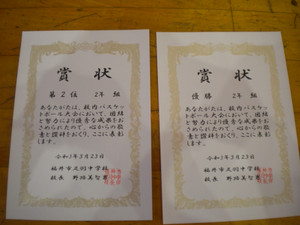 賞状
第2位 2年 組
あなたがたは、校内バスケット
ボール大会において、団結
と努力により優秀な成果をお
さめられたので、心からの敬
意と賞詞をおくり、ここに表彰
します。
令和3年3月23日
福井市 中学校
校長 野 美智
賞状
優勝 2年 組
あなたがたは、校内バスケット
ボール大会において、団結
と努力により優秀な成果をお
さめられたので、心からの敬
意と賞詞をおくり、ここに表彰
します。
令和3年3月23日
福井市 中学校
校長 野 美智